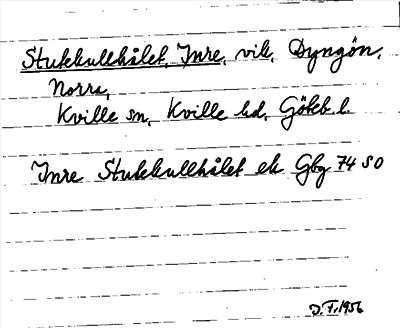 Stukkullhålet, Inre, vik, Dyngön,
Norra,
Kville sn, Kville hd, Göteb. l.
Inre Stukkullhålet ek Gbg 74 SO
J. F. 1956